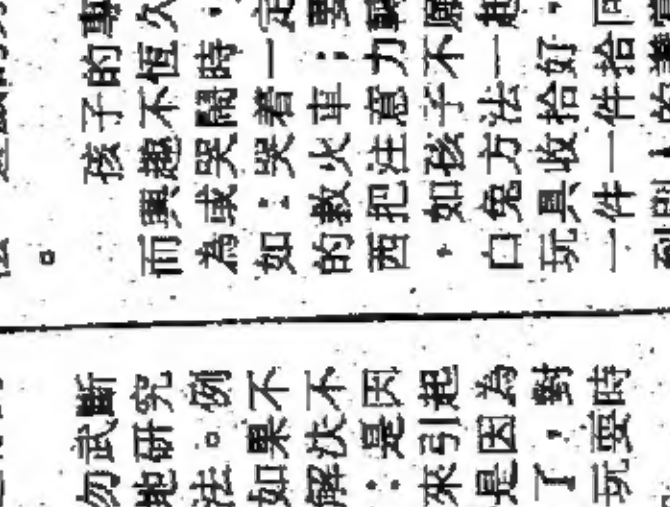 勿武斷
地研究
法。例
如果不
解決不
：是因
來引起
是因為
了，對
玩耍時
。
孩子的專
而興趣不恆久
為或哭鬧時，
如：哭着一定
的數火車；要
西把注意力轉
，如孩子不願
口兔方法一起
玩具收拾好，
一件一件拾回